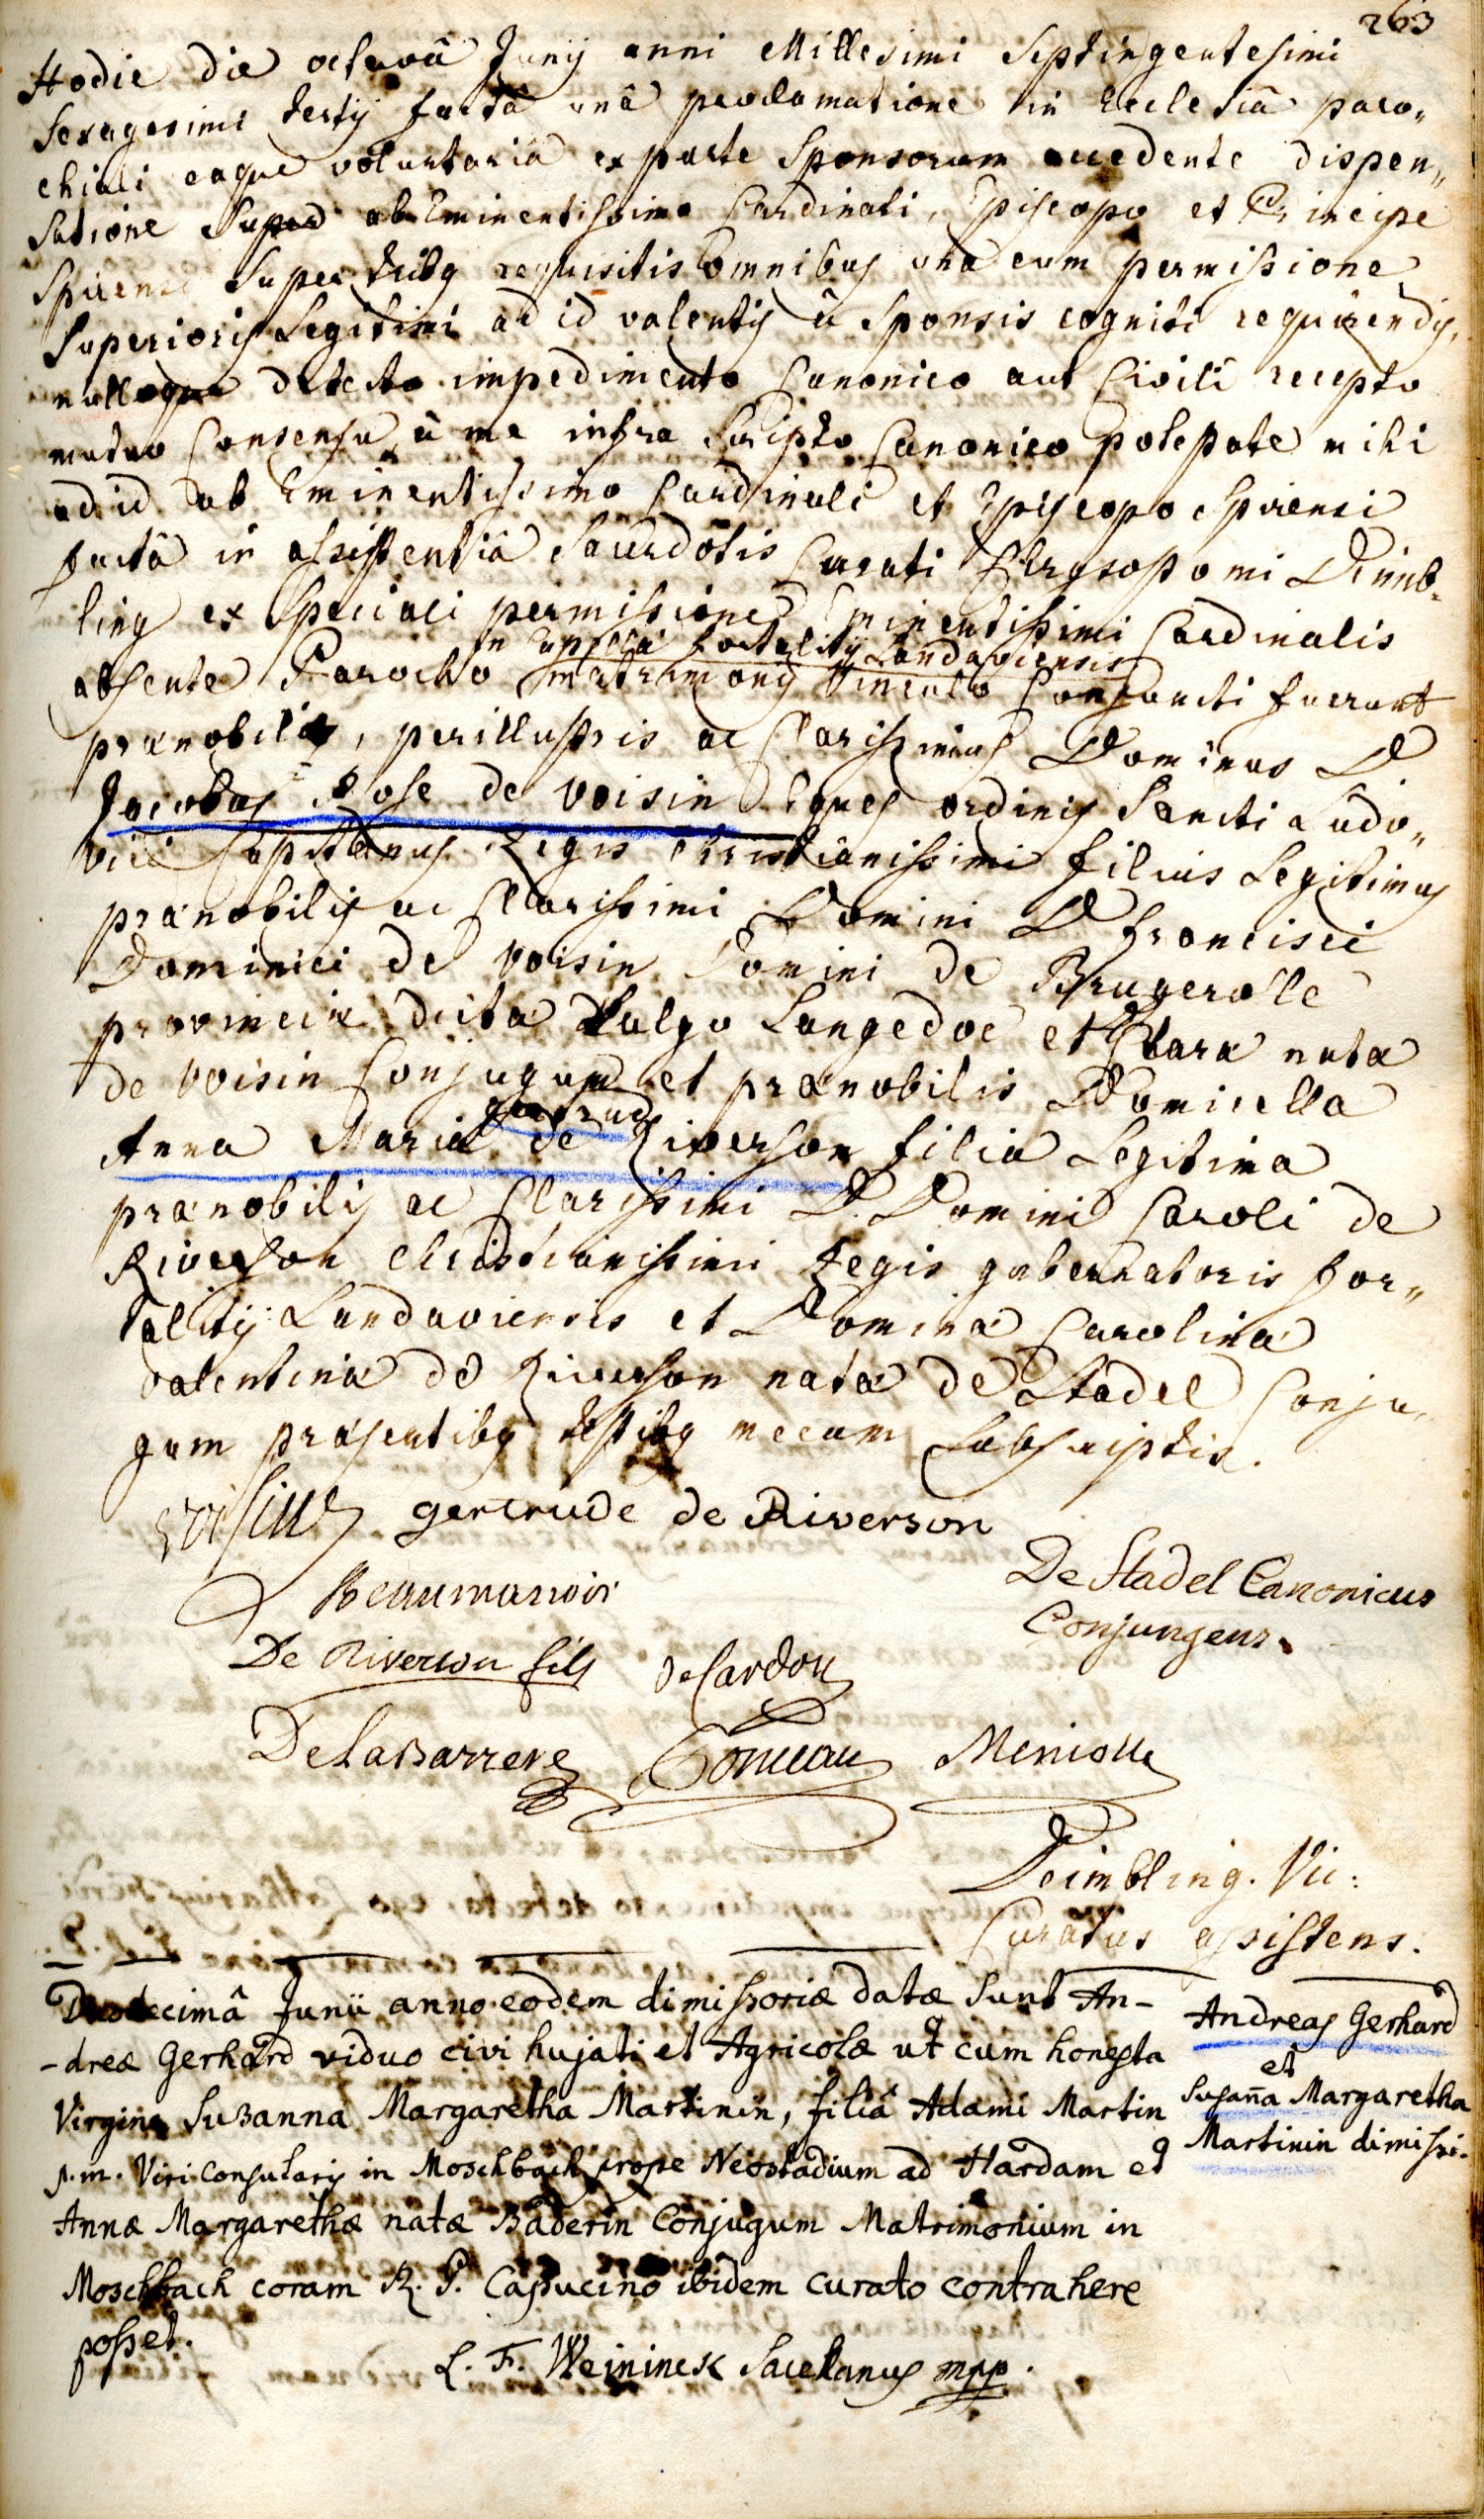 263
Hodie die octavâ Junij anni Millesimi Septingentesimi
Sexagesimi tertij factâ unâ proclamatione in Ecclesiâ paro„
chiali eaque voluntariâ ex parte Sponsorum accedente dispen„
satione ab Eminentissimo Cardinali, Episcopo et Principe
Spirensi super requisitis omnibus una cum permissione
Superioris Legitimi ad id valentis à Sponsis cognito requirendis,
nulloque detecto impedimento Canonico aut Civili recepto
mutuo Consensu à me infra Scripto Canonico potestate mihi
ad id ab Eminentissimo Cardinali et Episcopo Spirensi
factâ in assistentiâ Sacerdotis Curati Chrysostomi Deimb„
ling ex speciali permissione Eminentissimi Cardinalis
in Capella fortalitij Landaviensis
absente Parocho matrimonij vinculo Conjuncti fuerunt
prænobilis, perillustris ac Clarissimus Dominus D
Jacobus Rose de Voisin Eques ordinis Sancti Ludo„
vici Capitaneus Regis Christianissimi filius Legitimus
prænobilis ac Clarissimi Domini D Francisci
Dominici de Voisin Domini de Brugerolle
provinciæ dictæ Vulgo Langedoc et Claræ natæ
de Voisin Conjugum et prænobilis Domicella
gertrud
Anna Maria de Riverson filia Legitima
prænobilis ac Clarissimi D. Domini Caroli de
Riverson Christianissimi Regis gubernatoris for„
talitij Landaviensis et Dominæ Carolinæ
Valentinæ de Riverson natæ de Stadel Conju„
gum præsentibq testibq mecum Subscriptis.
Voisin gertrude de Riverson
Beaumanoir De Stadel Canonicus
Conjungens.
De Riverson fils De Cardon
DeLaBarrere Meniolle
Deimbling. Vic:
Curatus assistens.
Duodecimâ Junii anno eodem dimissoriæ datæ sunt An-
-dreæ Gerhard viduo civi hujati et Agricolæ ut cum honesta
Virgine Suzanna Margaretha Martinin, filiâ Adami Martin
p.m. Viri consularis in Moschbach prope Neostadium ad Hardam et
Annæ Margarethæ natæ Baderin Conjugum Matrimonium in
Moschbach coram R. P. Capucino ibidem curato contrahere
posset.
L. F. Weininck Sacellanus mpp.
Andreas Gerhard
et
Susaña Margaretha
Martinin dimissi.